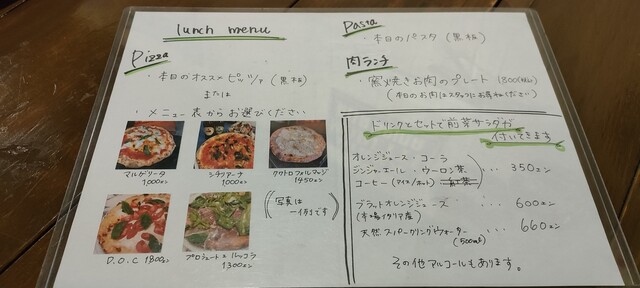 lunch menu
Pizza
・本日のオススメピッツァ(黒板)
または
・メニュー表からお選びください
マルゲリータ
1000エン
シチリアーナ
1000エン
クワトロフォルマッジ
1450エン
D.O.C 1800エン
プロシュート エ ルッコラ
1300エン
(写真は
一例です)
Pasta
・本日のパスタ(黒板)
肉ランチ
・窯焼きお肉のプレート 1800(税込)
(本日のお肉はスタッフにお尋ねください)
ドリンクとセットで前菜サラダが
付いてきます
オレンジジュース・コーラ
ジンジャーエール・ウーロン茶 ... 350エン
コーヒー(アイス/ホット)
ブラッドオレンジジュース ... 600エン
(本場イタリア産)
天然スパークリングウォーター ... 660エン
(500ml)
その他アルコールもあります。